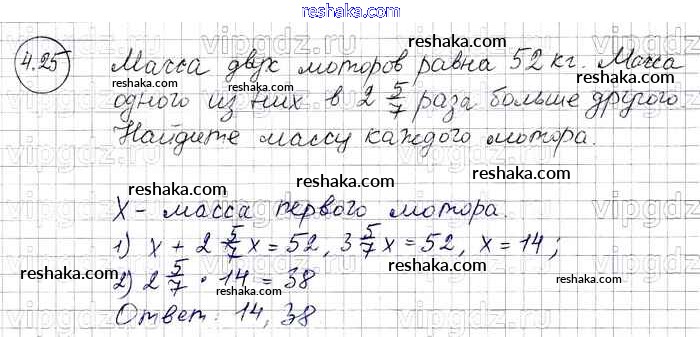 reshaka.com
4.25 Масса двух моторов равна 52 кг. Масса
одного из них в 2 5/7 раза больше другого
Найдите массу каждого мотора.
X - масса первого мотора.
1) x + 2 5/7 x = 52, 3 5/7 x = 52, x = 14;
2) 2 5/7 · 14 = 38
Ответ: 14, 38
reshaka.com
reshaka.com
reshaka.com
reshaka.com
reshaka.com
reshaka.com
reshaka.com
reshaka.com
reshaka.com
reshaka.com
reshaka.com
reshaka.com
vipgdz.ru
vipgdz.ru
vipgdz.ru